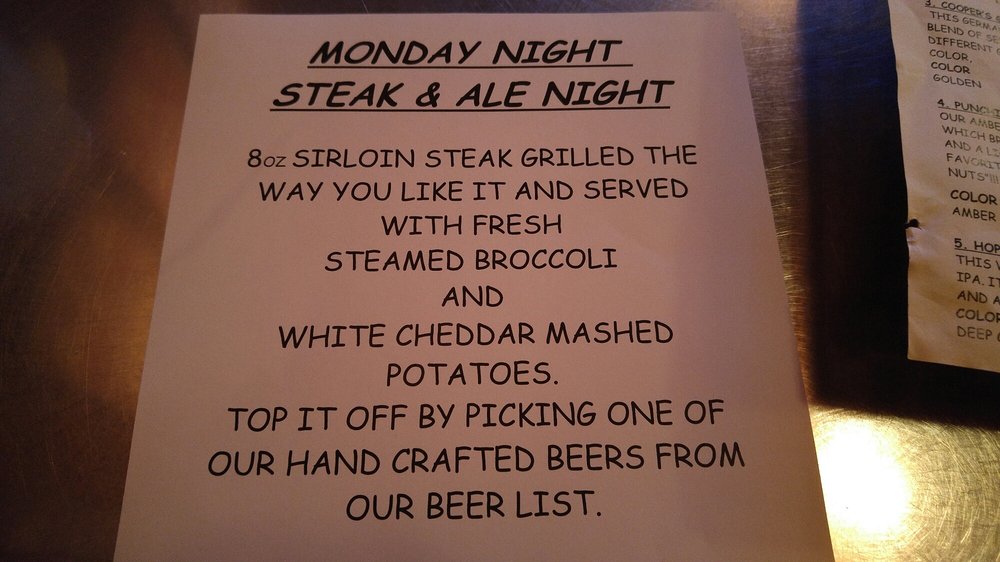 MONDAY NIGHT
STEAK & ALE NIGHT
8oz SIRLOIN STEAK GRILLED THE
WAY YOU LIKE IT AND SERVED
WITH FRESH
STEAMED BROCCOLI
AND
WHITE CHEDDAR MASHED
POTATOES.
TOP IT OFF BY PICKING ONE OF
OUR HAND CRAFTED BEERS FROM
OUR BEER LIST.
3. COOPER'S
THIS
BLEND OF
DIFFERENT
COLOR,
COLOR
GOLDEN
4.
OUR
WHICH
AND A
NUTS"!!!
COLOR
AMBER
5.
THIS
IPA.
AND
DEEP